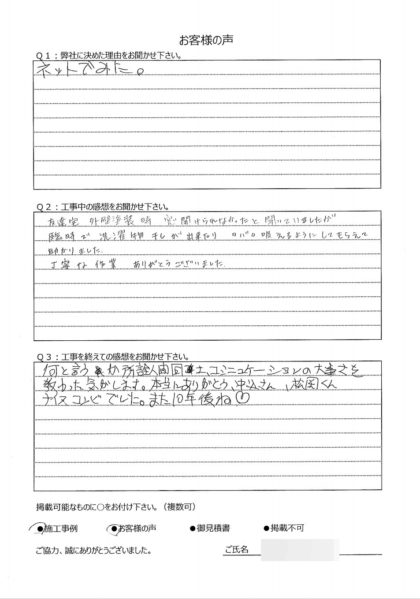 お客様の声
Q1：弊社に決めた理由をお聞かせ下さい。
ネットでみた。
Q2：工事中の感想をお聞かせ下さい。
友達宅 外壁塗装時 窓開けられなかったと聞いていましたが
臨時で 洗濯物干しが出来たり タバコ吸えるようにしてもらえて
助かりました
丁寧な作業 ありがとうございました
Q3：工事を終えての感想をお聞かせ下さい。
何と言うか所詮人間同士、コミュニケーションの大事さを
教わった気がします。本当にありがとう、中山さん、松岡くん
ナイスコンビでした。また10年後ね
掲載可能なものに○をお付け下さい。（複数可）
●施工事例 ●お客様の声 ●御見積書 ●掲載不可
ご協力、誠にありがとうございました。 ご氏名